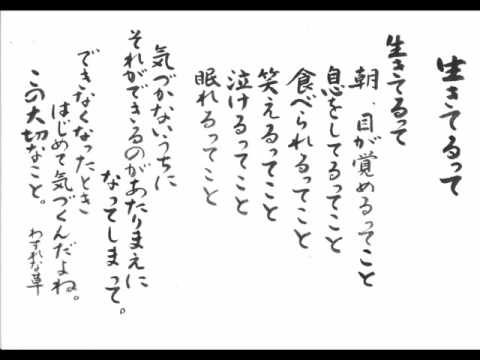 生きてるって
生きてるって
朝、目が覚めるってこと
息をしてるってこと
食べられるってこと
笑えるってこと
泣けるってこと
眠れるってこと
気づかないうちに
それができるのがあたりまえに
なってしまって。
できなくなったとき
はじめて気づくんだよね。
この大切なこと。
わすれな草